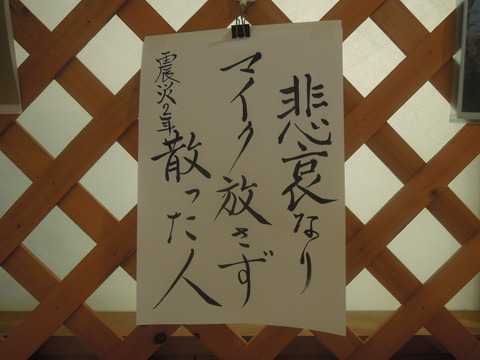 悲哀なり
マイク放さず
散った人
震災2年